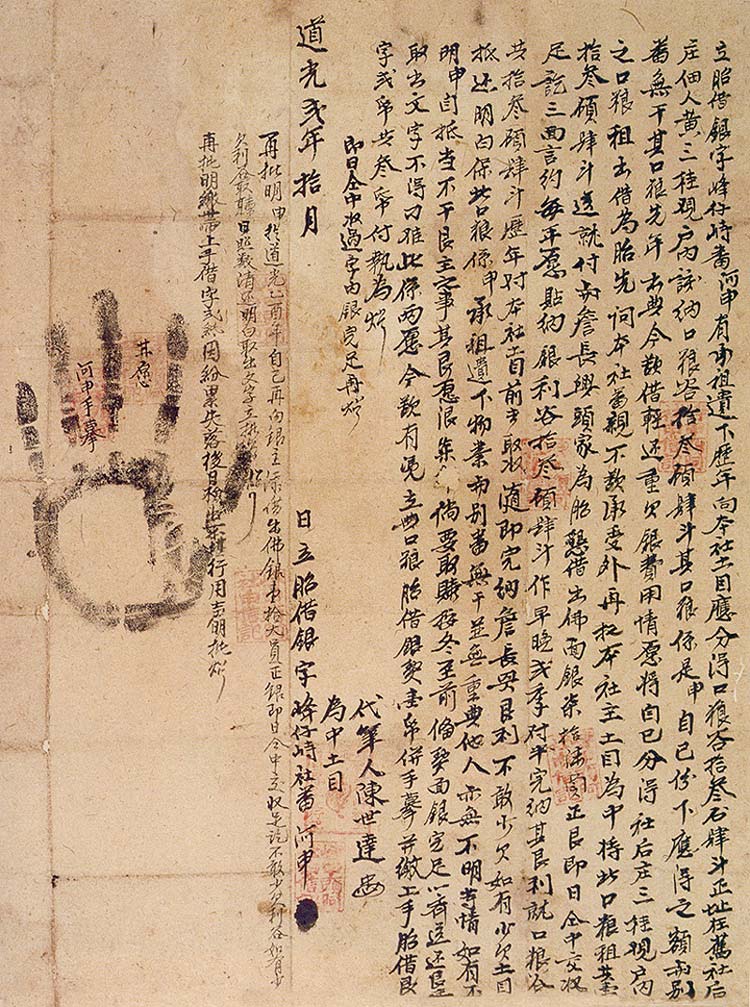 立胎借銀字峰仔峙番阿申有承祖遺下歷年向本社土目應分得口粮谷拾叁石肆斗正址在舊社后
庄佃人黃三桂現戶內該納口粮谷拾叁碩肆斗其口粮係是申自己份下應得之額与別
番無干其口粮先年出典今欲借輕还重欠銀費用情愿將自己分得社后庄三桂現戶內
之口粮租出借為胎先问本社番親不欲承受外再托本社主土目為中將此口粮租共
拾叁碩肆斗送就付与詹長興頭家為胎懇借出佛面銀柒拾正艮即日仝中交收
足訖三面言約每年愿貼納銀利谷拾叁碩肆斗作早晚弍季对半完納其艮利就口粮谷
共拾叁碩肆斗歷年对本社土目前去取收随即完納詹長興艮利不敢少欠如有少欠土目
抵还明白保此口粮係申承祖遺下物業与別番無干並無重典他人亦無不明等情如有不
明申自抵当不干艮主之事其艮愿限倘要取贖冬至前備契面銀完足一齊送还艮主
取出文字不得刁难此係兩愿今欲有凭立典口粮胎借銀契壹帋併手摹并繳上手胎借艮
字弍帋共叁帋付執為炤
即日仝中收過字內銀完足再炤
代筆人陳世達
為中土目
道光弍年拾月 日立胎借銀字峰仔峙社番阿申
再批明申於道光乙酉年自己再向銀主添借出佛銀壹拾大員正銀即日仝中交收足訖不敢少欠利谷如有少
欠利谷取贖日照数清还明白取出文字立批炤
再批明繳帶上手借字弍紙因失落後日檢出不堪行用批炤
甘愿
阿申手摹